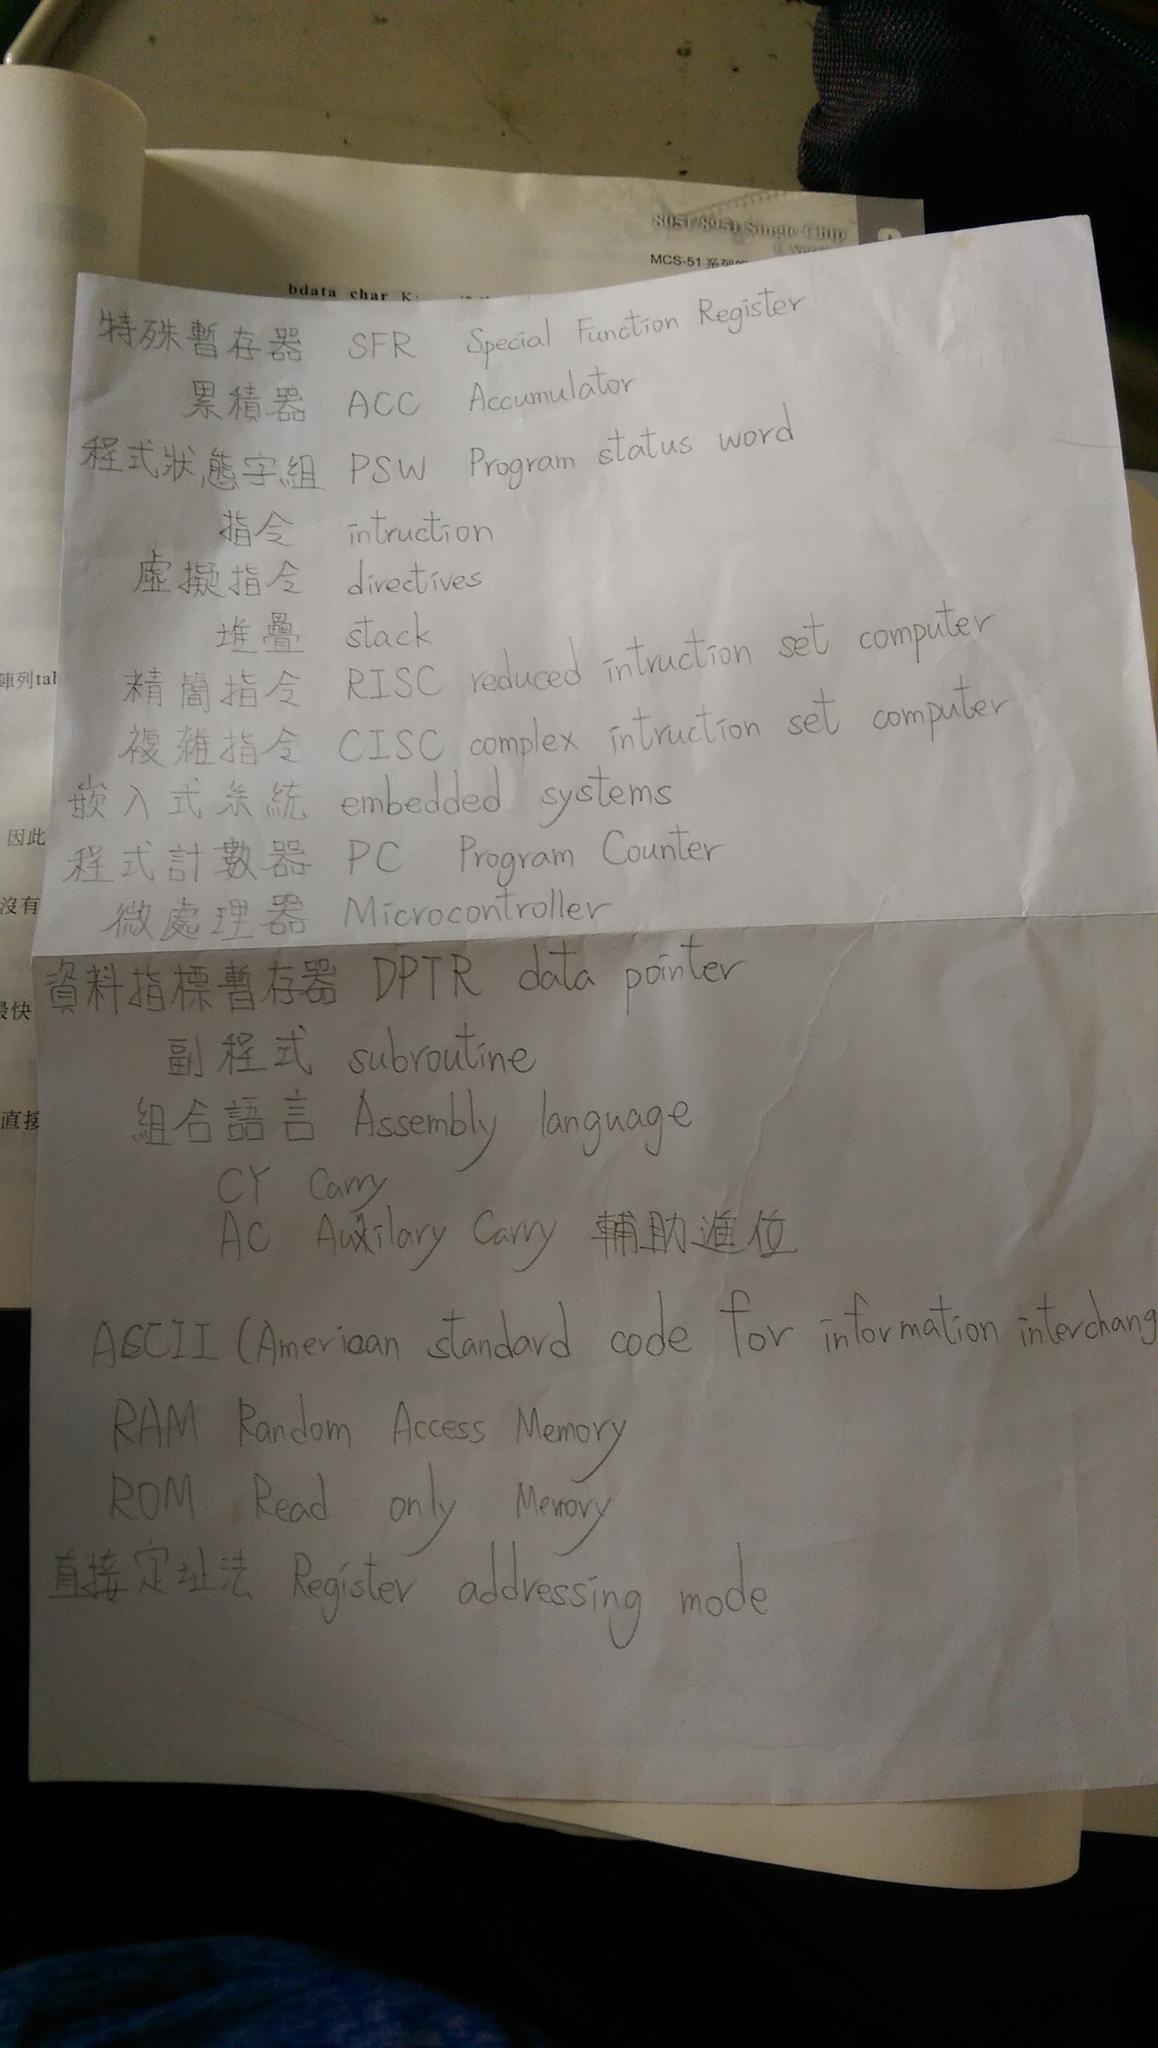 8051/8951 Single Chip
MCS-51
bdata char
特殊暫存器 SFR Special Function Register
累積器 ACC Accumulator
程式狀態字組 PSW Program status word
指令 intruction
虛擬指令 directives
堆疊 stack
精簡指令 RISC reduced intruction set computer
複雜指令 CISC complex intruction set computer
嵌入式系統 embedded systems
程式計數器 PC Program Counter
微處理器 Microcontroller
資料指標暫存器 DPTR data pointer
副程式 subroutine
組合語言 Assembly language
CY Carry
AC Auxilary Carry 輔助進位
ASCII (American standard code for information interchang
RAM Random Access Memory
ROM Read only Memory
直接定址法 Register addressing mode
陣列tal
因此
沒有
最快
直接